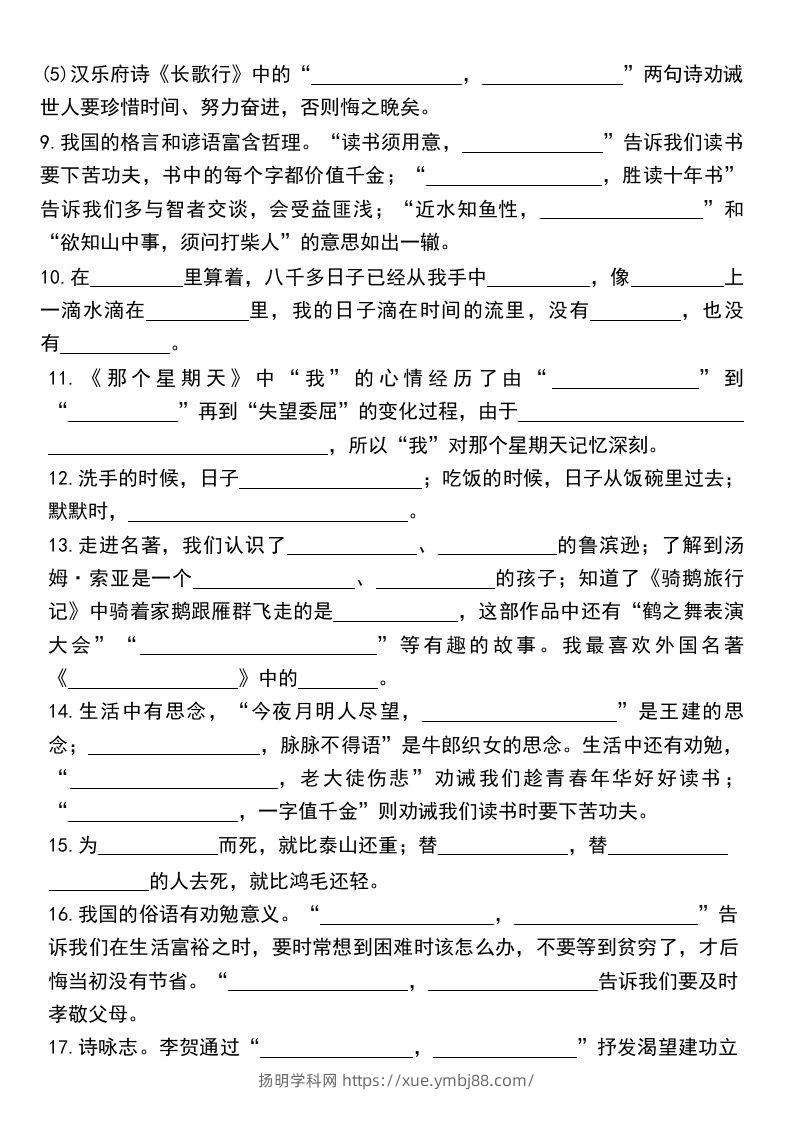 (5)汉乐府诗《长歌行》中的“______________，______________”两句诗劝诫
世人要珍惜时间、努力奋进，否则悔之晚矣。
9.我国的格言和谚语富含哲理。“读书须用意，______________”告诉我们读书
要下苦功夫，书中的每个字都价值千金；“________________，胜读十年书”
告诉我们多与智者交谈，会受益匪浅；“近水知鱼性，________________”和
“欲知山中事，须问打柴人”的意思如出一辙。
10.在_________里算着，八千多日子已经从我手中__________，像_________上
一滴水滴在__________里，我的日子滴在时间的流里，没有_________，也没
有___________。
11.《那个星期天》中“我”的心情经历了由“______________”到
“___________”再到“失望委屈”的变化过程，由于______________________
___________________________，所以“我”对那个星期天记忆深刻。
12.洗手的时候，日子__________________；吃饭的时候，日子从饭碗里过去；
默默时，___________________________。
13.走进名著，我们认识了_____________、____________的鲁滨逊；了解到汤
姆·索亚是一个________________、____________的孩子；知道了《骑鹅旅行
记》中骑着家鹅跟雁群飞走的是____________，这部作品中还有“鹤之舞表演
大会”“_______________________”等有趣的故事。我最喜欢外国名著
《_________________》中的________。
14.生活中有思念，“今夜月明人尽望，___________________”是王建的思
念；_________________，脉脉不得语”是牛郎织女的思念。生活中还有劝勉，
“____________________，老大徒伤悲”劝诫我们趁青春年华好好读书；
“_________________，一字值千金”则劝诫我们读书时要下苦功夫。
15.为____________而死，就比泰山还重；替_____________，替____________
__________的人去死，就比鸿毛还轻。
16.我国的俗语有劝勉意义。“_________________，__________________”告
诉我们在生活富裕之时，要时常想到困难时该怎么办，不要等到贫穷了，才后
悔当初没有节省。“__________________，_________________告诉我们要及时
孝敬父母。
17.诗咏志。李贺通过“_______________，______________”抒发渴望建功立
扬明学科网 https://xue.ymbj88.com/